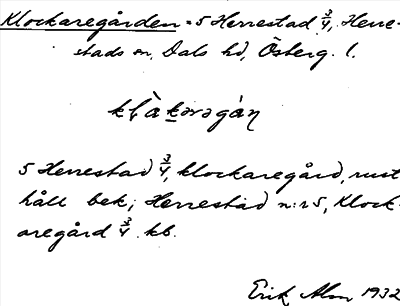 Klockaregården = 5 Herrestad 3/4, Herre-
stads sn, Dals hd, Österg. l.
5 Herrestad 3/4, klockaregård, rust
håll bek; Herrestad n:r 5, Klock-
aregård 3/4 kb.
Erik Alm 1932